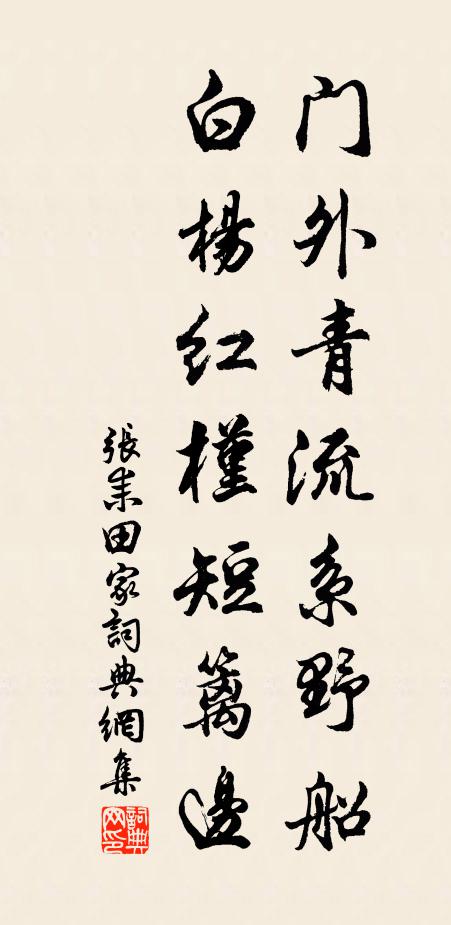 门外青流系野船
白楊红槿短篱邊
張耒田家詞典網集
詞典网印